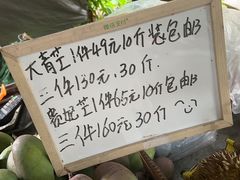 微信支付
大青芒1件49元10斤装包邮
三件130元.30斤.
贵妃芒1件65元10斤包邮
三件160元30斤